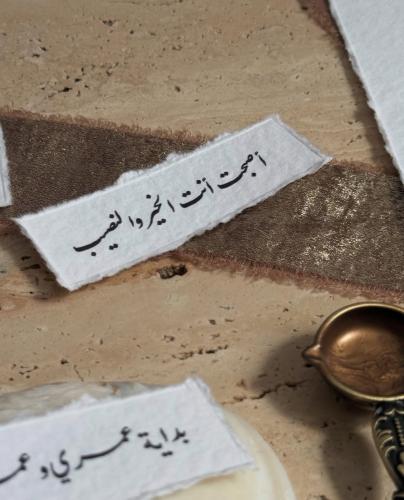 أصبحت أنت الخير والنصيب
بداية عمري و